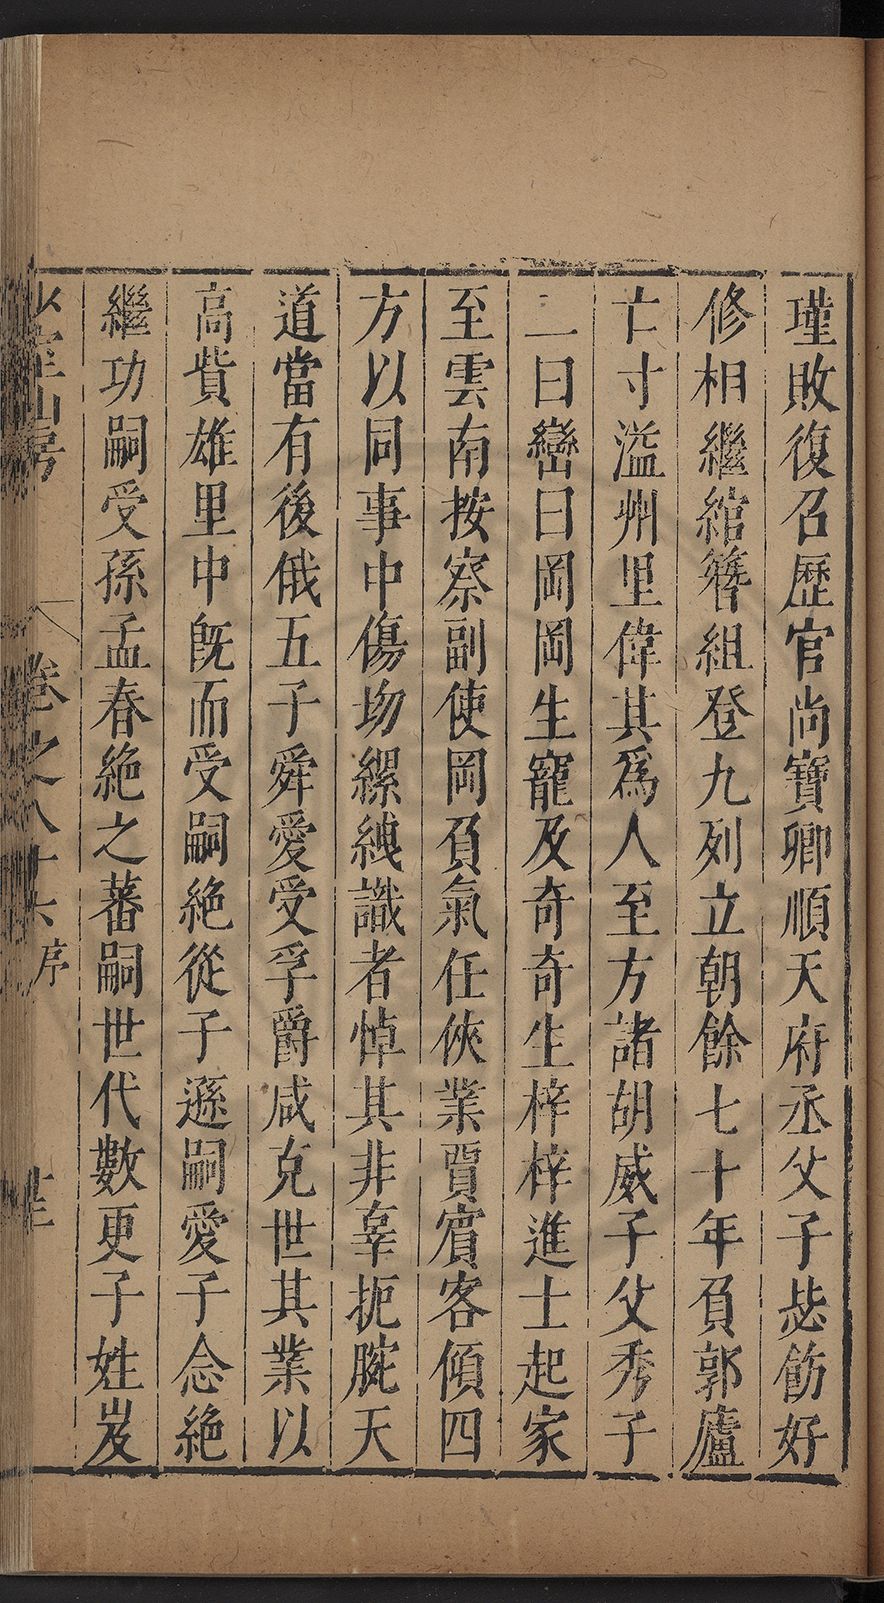 瑾敗復召歷官尚寶卿順天府丞父子毖飭好
修相繼綰簪組登九列立朝餘七十年負郭廬
亡寸溢州里偉其爲人至方諸胡威子父秀子
二曰巒曰岡岡生寵及奇奇生梓梓進士起家
至雲南按察副使岡負氣任俠業賈賓客傾四
方以同事中傷坳縲絏識者悼其非辜扼腕天
道當有後俄五子舜愛受孚爵咸克世其業以
高貲雄里中旣而受嗣絶從子遜嗣愛子念絶
繼功嗣受孫孟春絶之蕃嗣世代數更子姓岌
山房
卷之八十六序